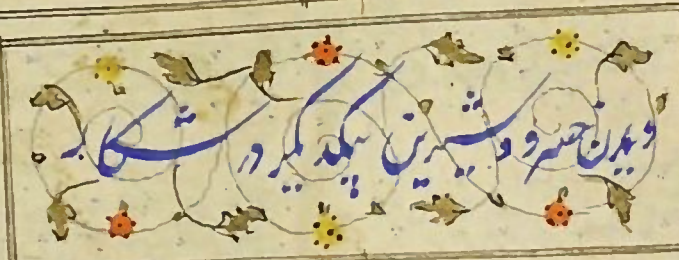 دیدن خسرو و شیرین یکدیگر در شکار